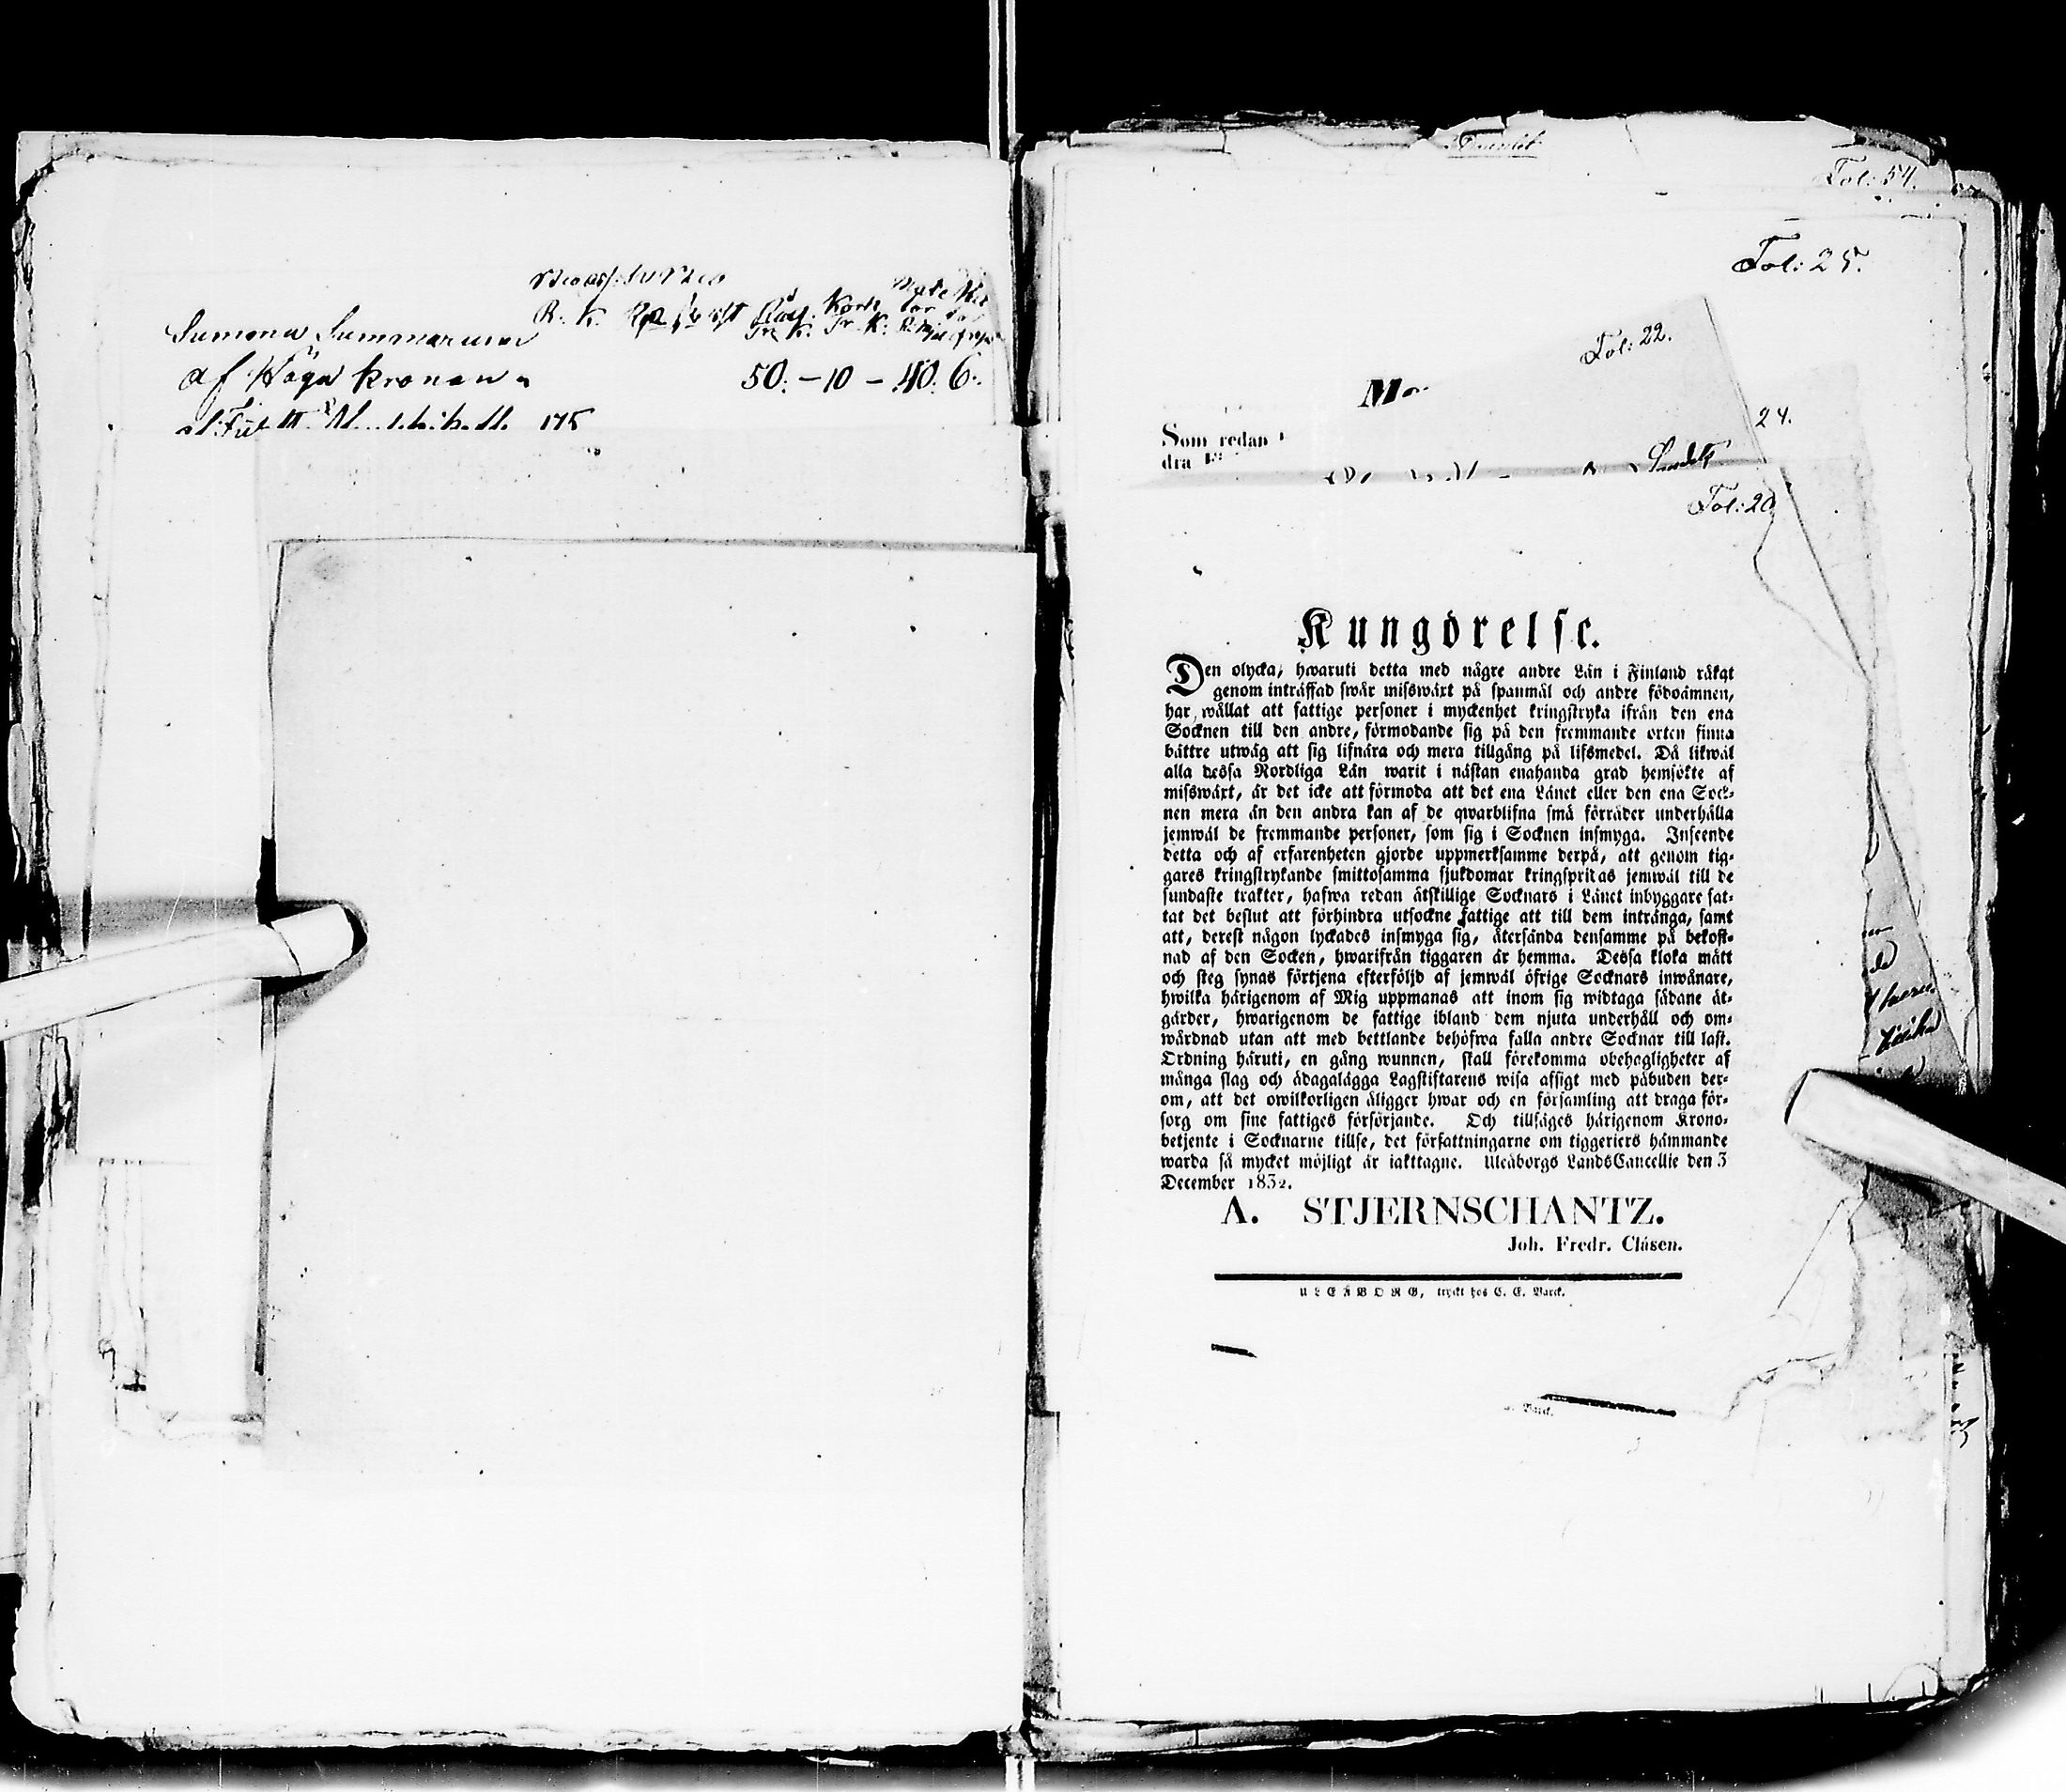 Summa Summarum
af Höga Kronan
R. K.
50. – 10 – 40. 6.
175
Fol: 54.
Fol: 25.
Fol: 22.
24.
Som redan
dra
Fol: 20
Kungörelse.
Den olycka, hwaruti detta med någre andre Län i Finland råkat
genom inträffad swår misswäxt på spanmål och andre födoämnen,
har wållat att fattige personer i myckenhet kringstryka ifrån den ena
Socknen till den andre, förmodande sig på den fremmande orten finna
bättre utwäg att sig lifnära och mera tillgång på lifsmedel. Då likwäl
alla dessa Nordliga Län warit i nästan enahanda grad hemsökte af
misswäxt, är det icke att förmoda att det ena Länet eller den ena Sock-
nen mera än den andra kan af de qwarblifna små förråder underhålla
jemwäl de fremmande personer, som sig i Socknen insmyga. Inseende
detta och af erfarenheten gjorde uppmerksamme derpå, att genom tig-
gares kringstrykande smittosamma sjukdomar kringspridas jemwäl till de
sundaste trakter, hafwa redan åtskillige Socknars i Länet inbyggare fat-
tat det beslut att förhindra utsockne fattige att till dem intränga, samt
att, derest någon lyckades insmyga sig, återsända densamme på bekost-
nad af den Socken, hwarifrån tiggaren är hemma. Dessa kloka mått
och steg synas förtjena efterföljd af jemwäl öfrige Socknars inwånare,
hwilka härigenom af Mig uppmanas att inom sig widtaga sådane åt-
gärder, hwarigenom de fattige ibland dem njuta underhåll och om-
wårdnad utan att med bettlande behöfwa falla andre Socknar till last.
Ordning häruti, en gång wunnen, skall förekomma obehagligheter af
många slag och ådagalägga Lagstiftarens wisa afsigt med påbuden der-
om, att det owilkorligen åligger hwar och en församling att draga för-
sorg om sine fattiges försörjande. Och tillsäges härigenom Krono-
betjente i Socknarne tillse, det författningarne om tiggeriers hämmande
warda så mycket möjligt är iakttagne. Uleåborgs LandsCancellie den 3
December 1832.
A. STJERNSCHANTZ.
Joh. Fredr. Clásen.
ULEÅBORG, tryckt hos C. E. Barck.
Barck.